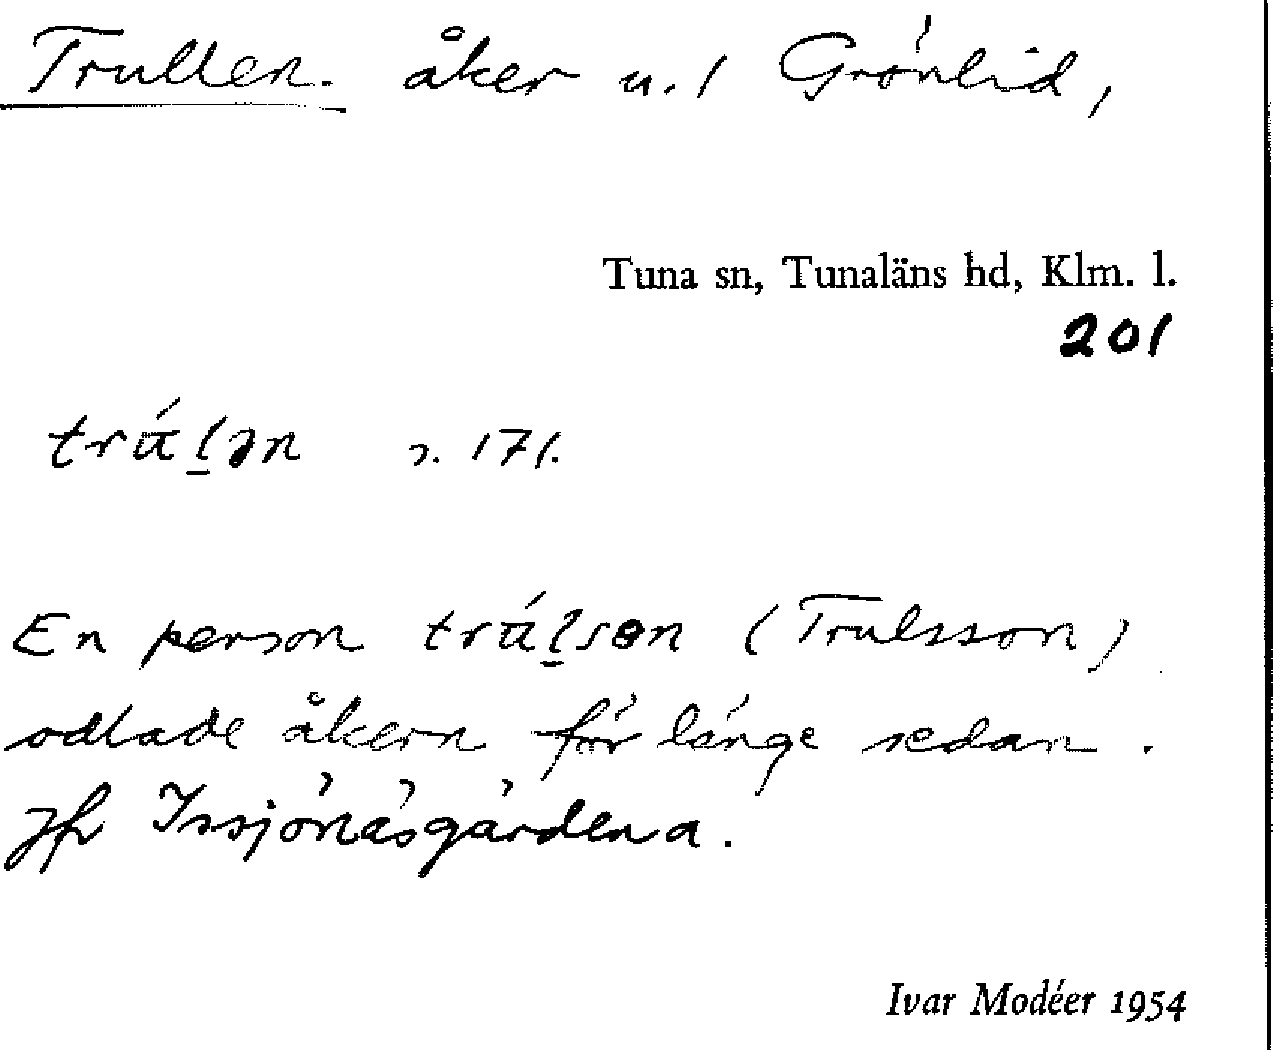 Trullen. åker u. / Grönlid,
Tuna sn, Tunaläns hd, Klm. l.
201
trá̄l̲ən s. 171.
En person trá̄l̲sən (Trulsson)
odlade åkern för länge sedan.
Jfr Issjönäsgärdena.
Ivar Modéer 1954